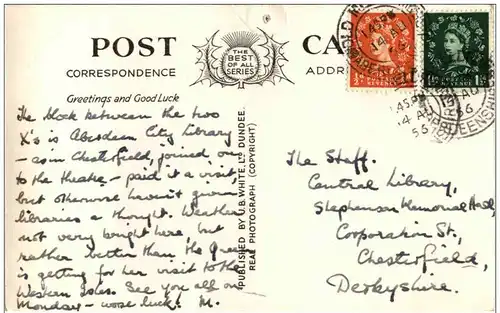 POST
CORRESPONDENCE
THE
BEST
OF ALL
SERIES
ADDRE
Greetings and Good Luck
The block between the two
X's is Aberdeen City Library
- as in Chesterfield, joined on
to the theatre - paid it a visit,
but otherwise haven't given
libraries a thought. Weather
not very bright here but
rather better than the Queen
is getting for her visit to the
Western Isles. See you all on
Monday - worse luck. M.
PUBLISHED BY J.B. WHITE, LTD DUNDEE
REAL PHOTOGRAPH (COPYRIGHT)
145PM
14 AU
145PM
14 AU
56
The Staff,
Central Library,
Stephenson Memorial Hall
Corporation St,
Chesterfield,
Derbyshire.